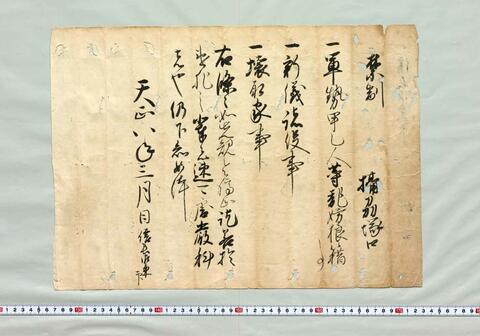 禁制 摂州塚口
一軍勢甲乙人等乱妨狼藉事
一新儀諸役事
一壊取家事
右條々如先規令停止訖若於
違犯之輩者速可處厳科
者也仍下知如件
天正八年三月日信長